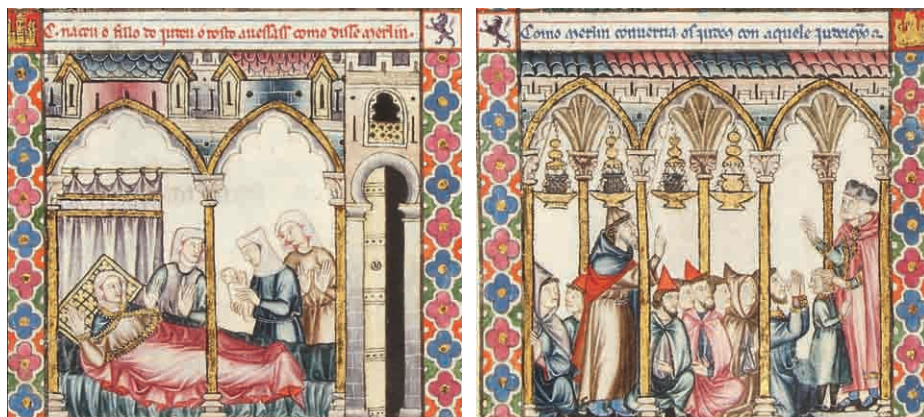 C. naceu o fillo do judeu o rosto auessas como disse Merlin.
Como Merlin conuertia os judeus con aquele